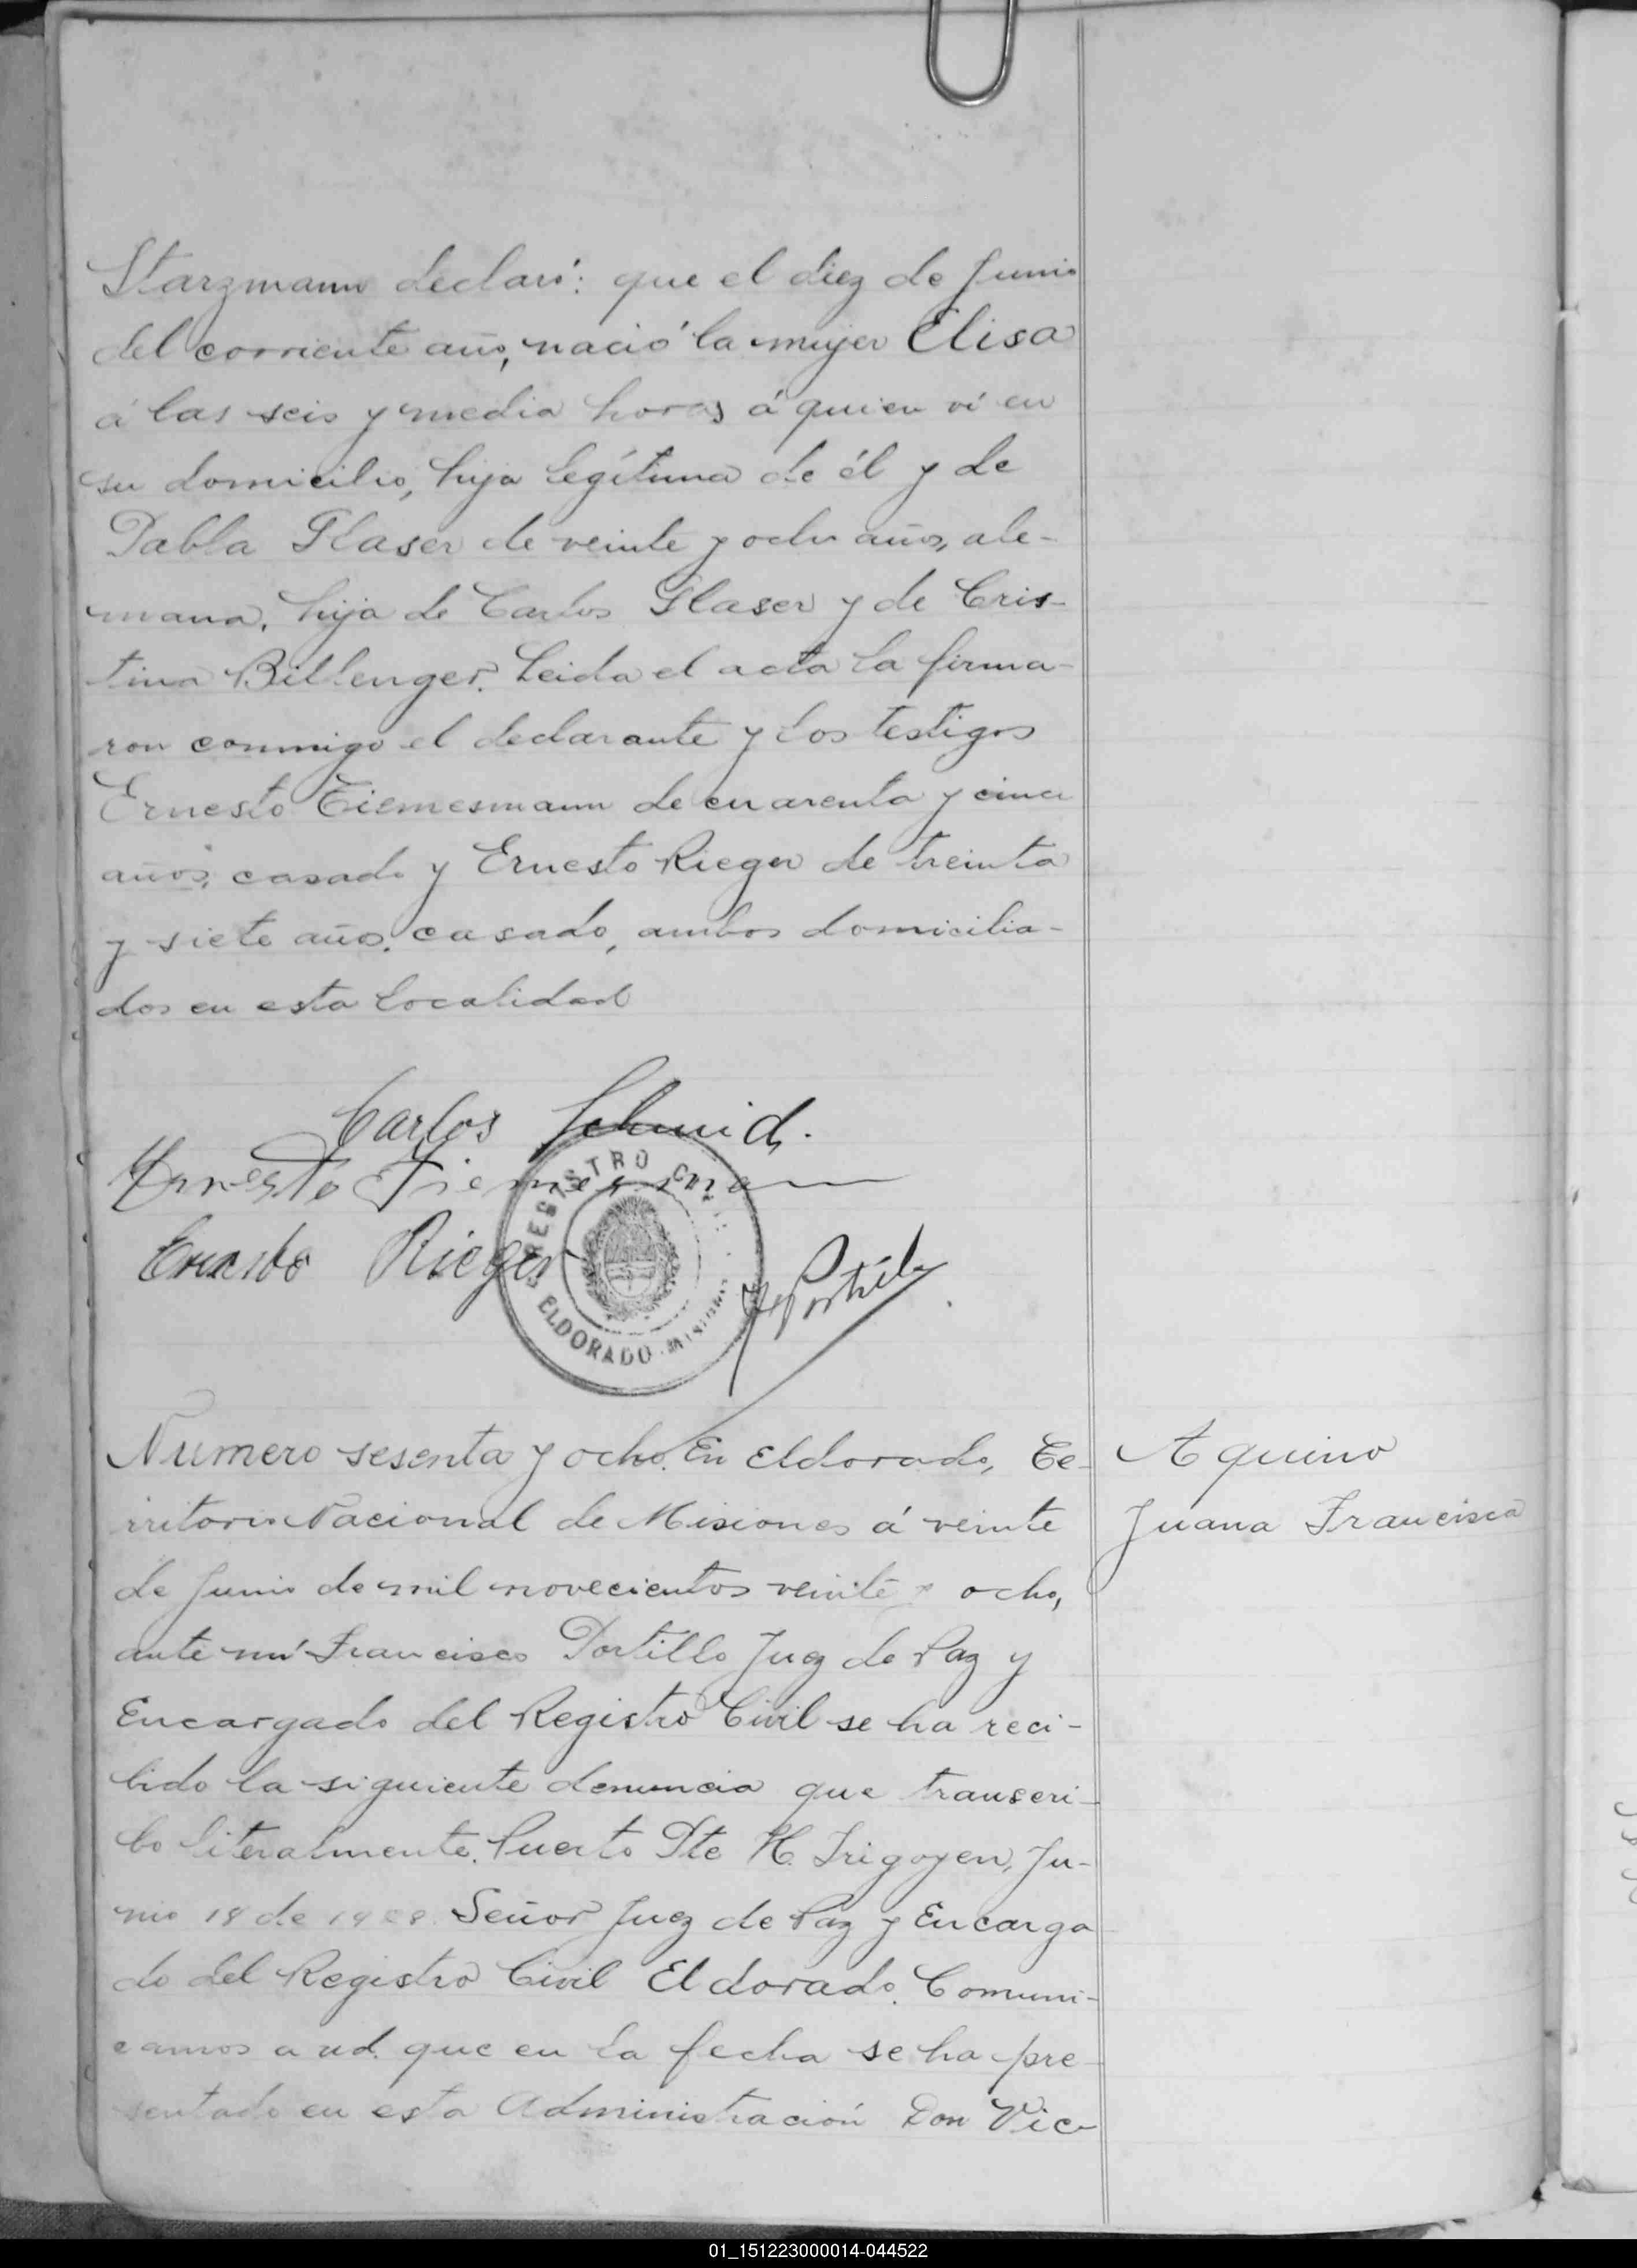 Starzmann declaró: que el diez de Junio
del corriente año, nació la mujer Elisa
á las seis y media horas á quien ví en
su domicilio, hija legítima de él y de
Pabla Glaser de veinte y ocho años, ale-
mana, hija de Carlos Glaser y de Cris-
tina Billenger. Leida el acta la firma-
ron conmigo el declarante y los testigos
Ernesto Tiemesmann de cuarenta y cinco
años, casado y Ernesto Rieger de treinta
y siete años, casado, ambos domicilia-
dos en esta localidad
Carlos Schmid.
Ernesto Tiemesmann
Ernesto Rieger
REGISTRO CIVIL
ELDORADO Misiones
F Portillo
Numero sesenta y ocho. En Eldorado, Te-
rritorio Nacional de Misiones á veinte
de Junio de mil novecientos veinte y ocho,
ante mí Francisco Portillo Juez de Paz y
Encargado del Registro Civil se ha reci-
bido la siguiente denuncia que transcri-
bo literalmente. Puerto Pte H. Irigoyen, Ju-
nio 18 de 1928. Señor Juez de Paz y Encarga
do del Registro Civil Eldorado. Comuni-
camos a ud. que en la fecha se ha pre-
sentado en esta Administración Don Vic-
Aquino
Juana Francisca
01_151223000014-044522